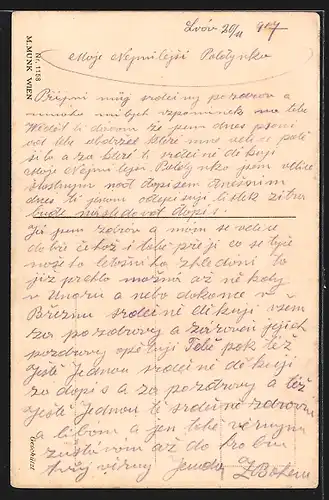 Lvóv 20/11 917
Moje Nejmilejší Pololynko
Přijmi můj srdečný pozdrav a
mnoho milých vzpomínek na tebe
jsem dnes psaní
od tebe obdržel které mne velice potě
šilo a za které ti srdečně děkuji
Moje Nejmilejší jsem velice
šťastným nad dopisem dnešním
dnes ti jenom odepisuji lístek zítra
bude následovat dopis.
Já jsem zdráv a mám se velice
dobře čehož i tobě přeji co se týče
našeho letošního shledání to
již prchlo možná až někdy
v Únoru a nebo dokonce v
Březnu srdečně děkuji všem
za pozdravy a zároveň jejich
pozdravy opětuji Tobě pak též
ještě jednou srdečně děkuji
za dopis a za pozdravy a též
ještě Jednou tě srdečně zdravím
a líbám a jen tobě věrným
zůstávám až do hrobu
tvůj věrný Jenda Z Bohem
Nr. 1158
M. MUNK WIEN
Geschützt